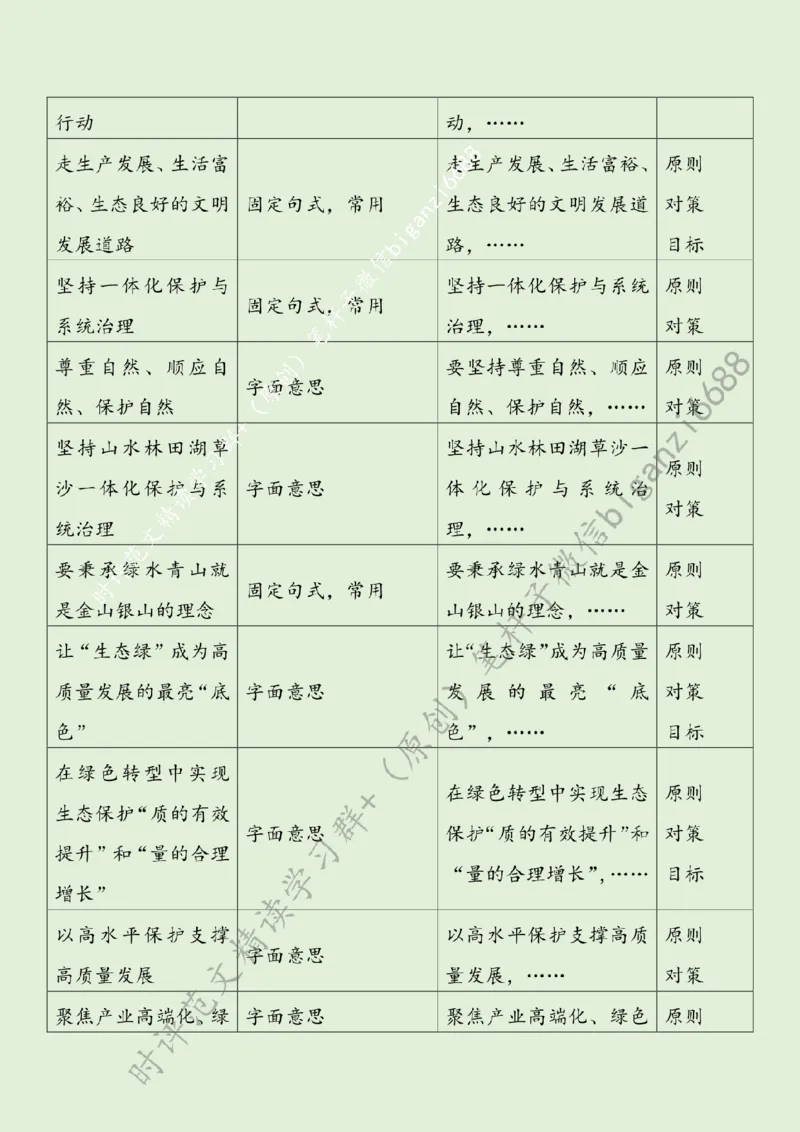 行动
动，……
走生产发展、生活富
裕、生态良好的文明
发展道路
固定句式，常用
走生产发展、生活富裕、
生态良好的文明发展道
路，……
原则
对策
目标
坚持一体化保护与
系统治理
固定句式，常用
坚持一体化保护与系统
治理，……
原则
对策
尊重自然、顺应自
然、保护自然
字面意思
要坚持尊重自然、顺应
自然、保护自然，……
原则
对策
坚持山水林田湖草
沙一体化保护与系
统治理
字面意思
坚持山水林田湖草沙一
体化保护与系统治
理，……
原则
对策
要秉承绿水青山就
是金山银山的理念
固定句式，常用
要秉承绿水青山就是金
山银山的理念，……
原则
对策
让“生态绿”成为高
质量发展的最亮“底
色”
字面意思
让“生态绿”成为高质量
发展的最亮“底
色”，……
原则
对策
目标
在绿色转型中实现
生态保护“质的有效
提升”和“量的合理
增长”
字面意思
在绿色转型中实现生态
保护“质的有效提升”和
“量的合理增长”，……
原则
对策
目标
以高水平保护支撑
高质量发展
字面意思
以高水平保护支撑高质
量发展，……
原则
对策
聚焦产业高端化、绿
字面意思
聚焦产业高端化、绿色
原则
时评范文精读学习群+（原创）笔杆子微信biganzi6688
时评范文精读学习群+（原创）笔杆子微信biganzi6688